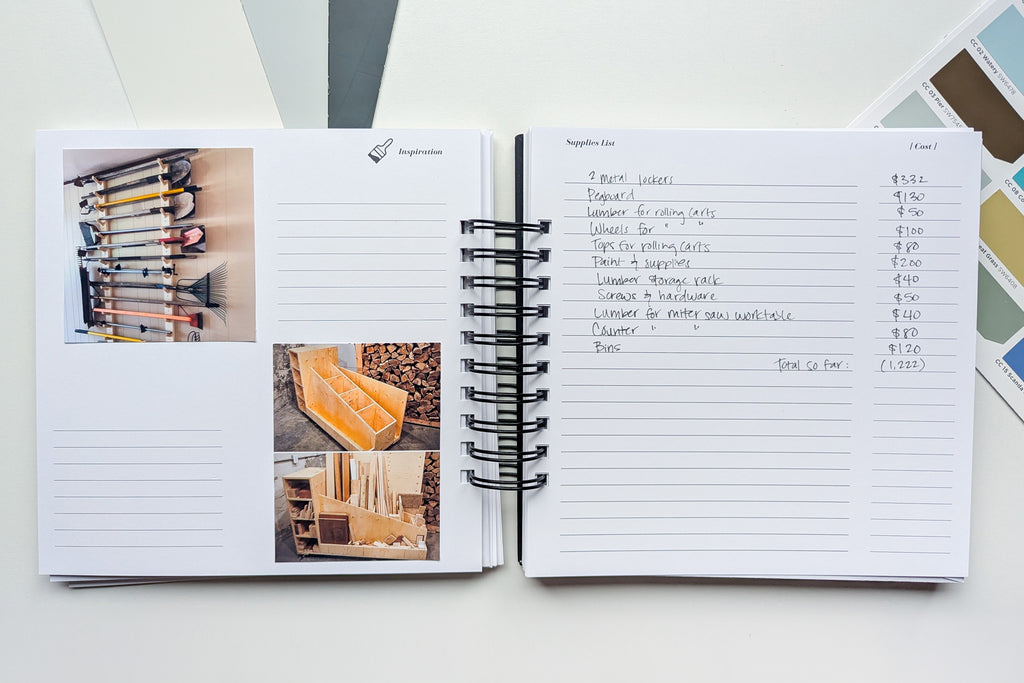 Inspiration
Supplies List [ Cost ]
2 metal lockers $332
Pegboard $130
Lumber for rolling carts $50
Wheels for " " $100
Tops for rolling carts $80
Paint & supplies $200
Lumber storage rack $40
Screws & hardware $50
Lumber for miter saw worktable $40
Counter " " $80
Bins $120
Total so far: (1,222)
CC 02 Watery SW6478
CC 03 Pier SW7545
Grass SW6408
CC 08
CC 15 Scanda